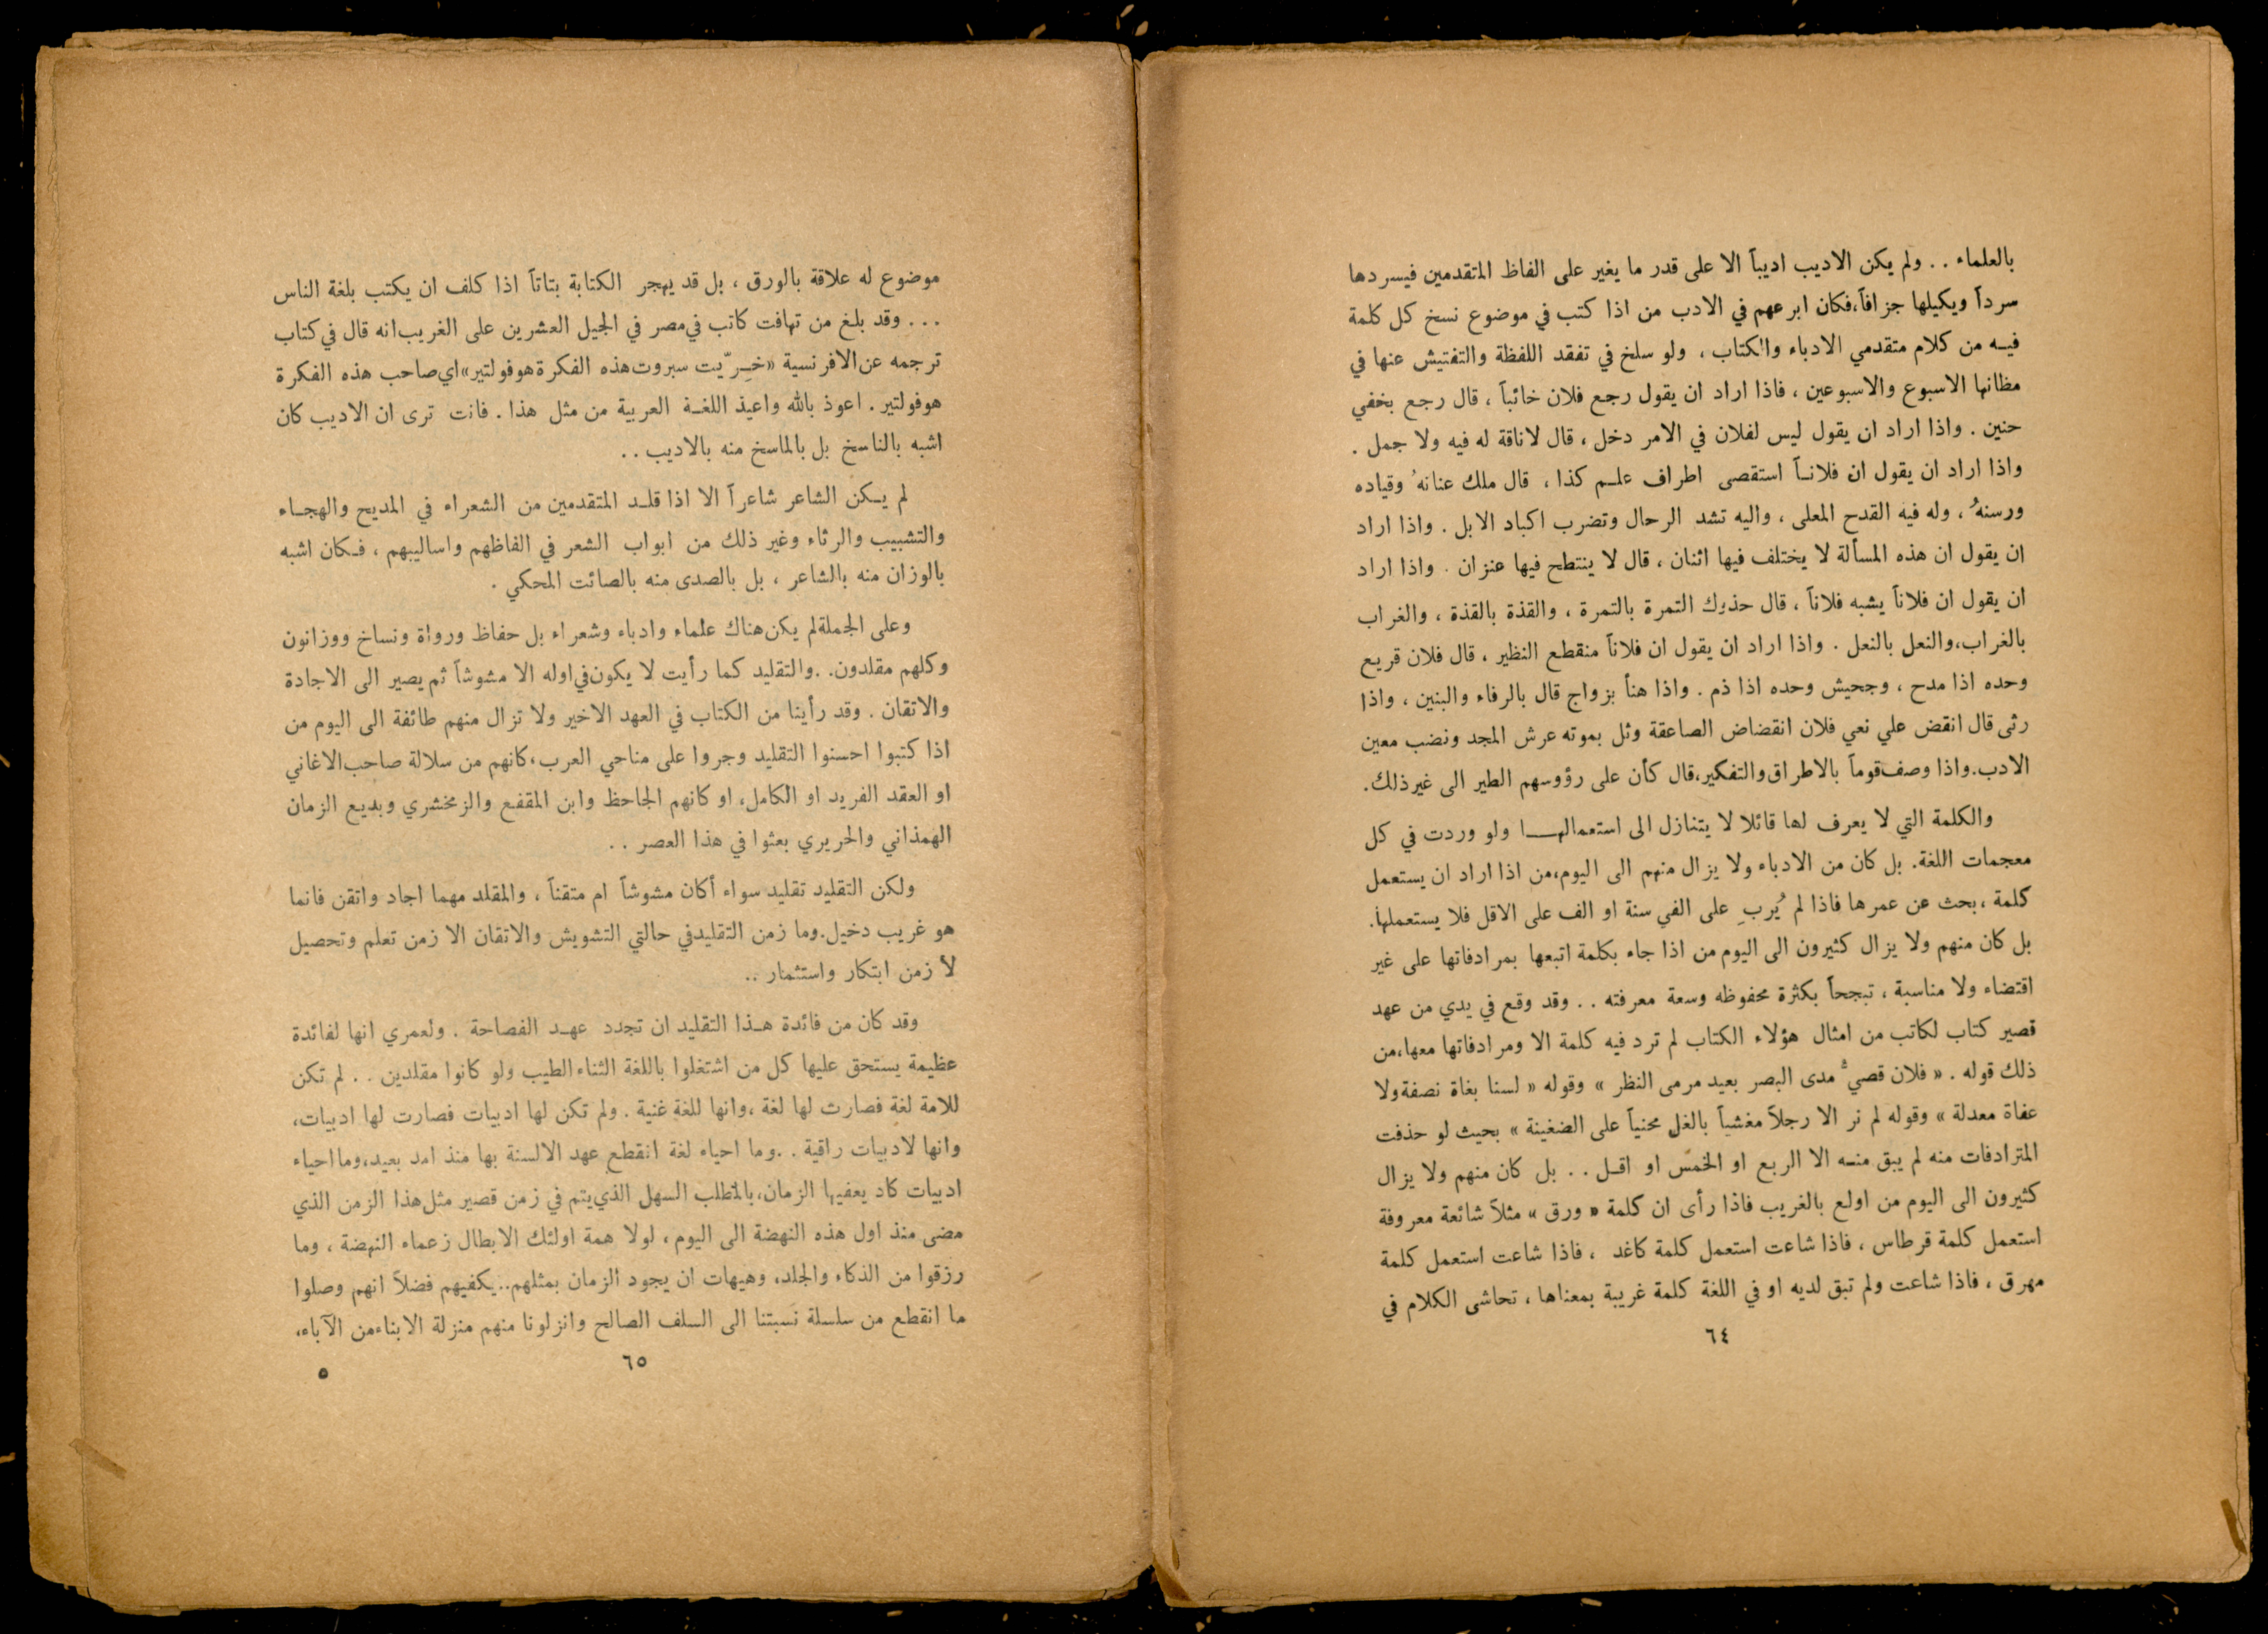 بالعلماء . . ولم يكن الاديب اديباً الا على قدر ما يغير على الفاظ المتقدمين فيسردها
سرداً ويكيلها جزافاً، فكان ابرعهم في الادب من اذا كتب في موضوع نسخ كل كلمة
فيه من كلام متقدمي الادباء والكتاب ، ولو سلخ في تفقد اللفظة والتفتيش عنها في
مظانها الاسبوع والاسبوعين ، فاذا اراد ان يقول رجع فلان خائباً ، قال رجع بخفي
حنين . واذا اراد ان يقول ليس لفلان في الامر دخل ، قال لاناقة له فيه ولا جمل .
واذا اراد ان يقول ان فلاناً استقصى اطراف علم كذا ، قال ملك عنانهُ وقياده
ورسنهُ ، وله فيه القدح المعلى ، واليه تشد الرحال وتضرب اكباد الابل . واذا اراد
ان يقول ان هذه المسألة لا يختلف فيها اثنان ، قال لا ينتطح فيها عنزان . واذا اراد
ان يقول ان فلاناً يشبه فلاناً ، قال حذوك التمرة بالتمرة ، والقذة بالقذة ، والغراب
بالغراب، والنعل بالنعل . واذا اراد ان يقول ان فلاناً منقطع النظير ، قال فلان قريع
وحده اذا مدح ، وجحيش وحده اذا ذم . واذا هنأ بزواج قال بالرفاء والبنين ، واذا
رثى قال انقض علي نعي فلان انقضاض الصاعقة وثل بموته عرش المجد ونضب معين
الادب. واذا وصف قوماً بالاطراق والتفكير، قال كأن على رؤوسهم الطير الى غير ذلك.
والكلمة التي لا يعرف لها قائلا لا يتنازل الى استعمالها ولو وردت في كل
معجمات اللغة. بل كان من الادباء ولا يزال منهم الى اليوم، من اذا اراد ان يستعمل
كلمة ، بحث عن عمرها فاذا لم يُربِ على الفي سنة او الف على الاقل فلا يستعملها.
بل كان منهم ولا يزال كثيرون الى اليوم من اذا جاء بكلمة اتبعها بمرادفاتها على غير
اقتضاء ولا مناسبة ، تبجحاً بكثرة محفوظه وسعة معرفته . . وقد وقع في يدي من عهد
قصير كتاب لكاتب من امثال هؤلاء الكتاب لم ترد فيه كلمة الا ومرادفاتها معها، من
ذلك قوله . « فلان قصيُّ مدى البصر بعيد مرمى النظر » وقوله « لسنا بغاة نصفة ولا
عفاة معدلة » وقوله لم نر الا رجلاً مغشياً بالغل محنياً على الضغينة » بحيث لو حذفت
المترادفات منه لم يبق منه الا الربع او الخمس او اقل . . بل كان منهم ولا يزال
كثيرون الى اليوم من اولع بالغريب فاذا رأى ان كلمة « ورق » مثلاً شائعة معروفة
استعمل كلمة قرطاس ، فاذا شاعت استعمل كلمة كاغد ، فاذا شاعت استعمل كلمة
مهرق ، فاذا شاعت ولم تبق لديه او في اللغة كلمة غريبة بمعناها ، تحاشى الكلام في
٦٤
موضوع له علاقة بالورق ، بل قد يهجر الكتابة بتاتاً اذا كلف ان يكتب بلغة الناس
. . . وقد بلغ من تهافت كاتب في مصر في الجيل العشرين على الغريب انه قال في كتاب
ترجمه عن الافرنسية «خِرّيت سبروت هذه الفكرة هو فولتير» اي صاحب هذه الفكرة
هو فولتير . اعوذ بالله واعيذ اللغة العربية من مثل هذا . فانت ترى ان الاديب كان
اشبه بالناسخ بل بالماسخ منه بالاديب . .
لم يكن الشاعر شاعراً الا اذا قلد المتقدمين من الشعراء في المديح والهجاء
والتشبيب والرثاء وغير ذلك من ابواب الشعر في الفاظهم واساليبهم ، فكان اشبه
بالوزان منه بالشاعر ، بل بالصدى منه بالصائت المحكي .
وعلى الجملة لم يكن هناك علماء وادباء وشعراء بل حفاظ ورواة ونساخ ووزانون
وكلهم مقلدون. . والتقليد كما رأيت لا يكون في اوله الا مشوشاً ثم يصير الى الاجادة
والاتقان . وقد رأينا من الكتاب في العهد الاخير ولا تزال منهم طائفة الى اليوم من
اذا كتبوا احسنوا التقليد وجروا على مناحي العرب، كانهم من سلالة صاحب الاغاني
او العقد الفريد او الكامل، او كانهم الجاحظ وابن المقفع والزمخشري وبديع الزمان
الهمذاني والحريري بعثوا في هذا العصر . .
ولكن التقليد تقليد سواء أكان مشوشاً ام متقناً ، والمقلد مهما اجاد واتقن فانما
هو غريب دخيل. وما زمن التقليد في حالتي التشويش والاتقان الا زمن تعلم وتحصيل
لا زمن ابتكار واستثمار ..
وقد كان من فائدة هذا التقليد ان تجدد عهد الفصاحة . ولعمري انها لفائدة
عظيمة يستحق عليها كل من اشتغلوا باللغة الثناء الطيب ولو كانوا مقلدين . . لم تكن
للامة لغة فصارت لها لغة ، وانها للغة غنية . ولم تكن لها ادبيات فصارت لها ادبيات،
وانها لادبيات راقية . . وما احياء لغة انقطع عهد الالسنة بها منذ امد بعيد، وما احياء
ادبيات كاد يعفيها الزمان، بالمطلب السهل الذي يتم في زمن قصير مثل هذا الزمن الذي
مضى منذ اول هذه النهضة الى اليوم ، لولا همة اولئك الابطال زعماء النهضة ، وما
رزقوا من الذكاء والجلد، وهيهات ان يجود الزمان بمثلهم.. يكفيهم فضلاً انهم وصلوا
ما انقطع من سلسلة نسبتنا الى السلف الصالح وانزلونا منهم منزلة الابناء من الآباء،
٦٥
٥